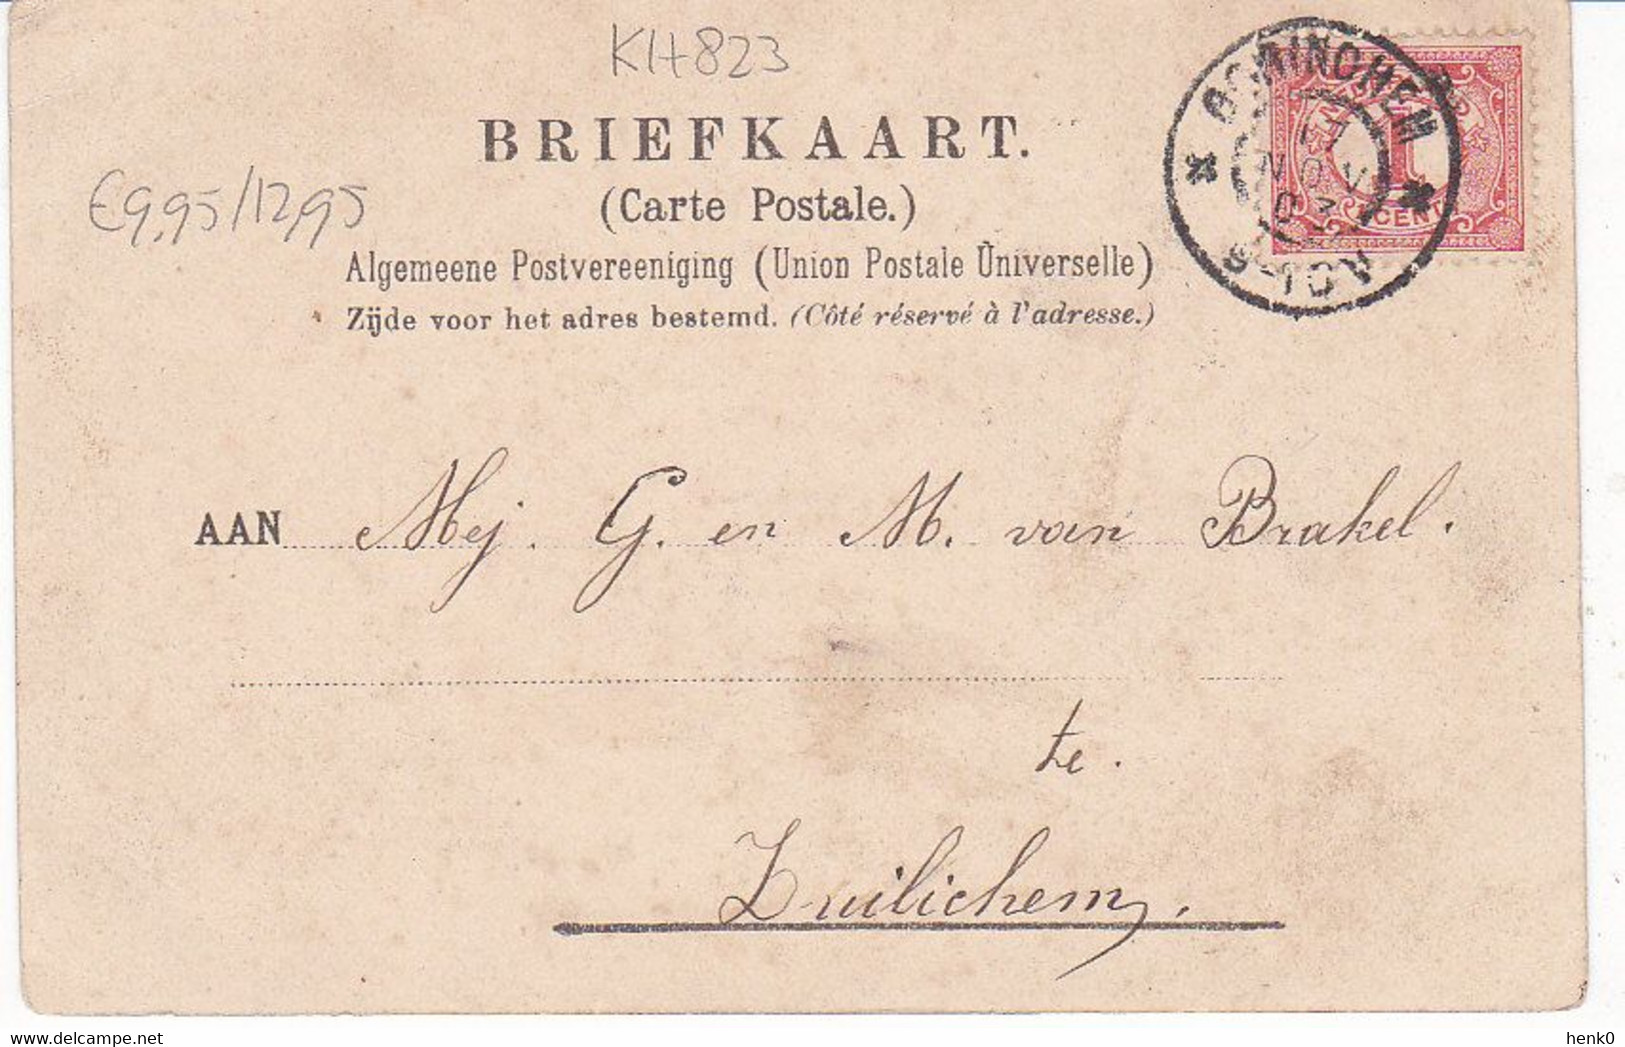 KH823
BRIEFKAART.
€9,95/12,95
(Carte Postale.)
Algemeene Postvereeniging (Union Postale Universelle)
Zijde voor het adres bestemd. (Côté réservé à l'adresse.)
GORINCHEM
NOV
03
CENT
AAN Mej. G. en M. van Brakel.
te.
Zuilichem.
henk0